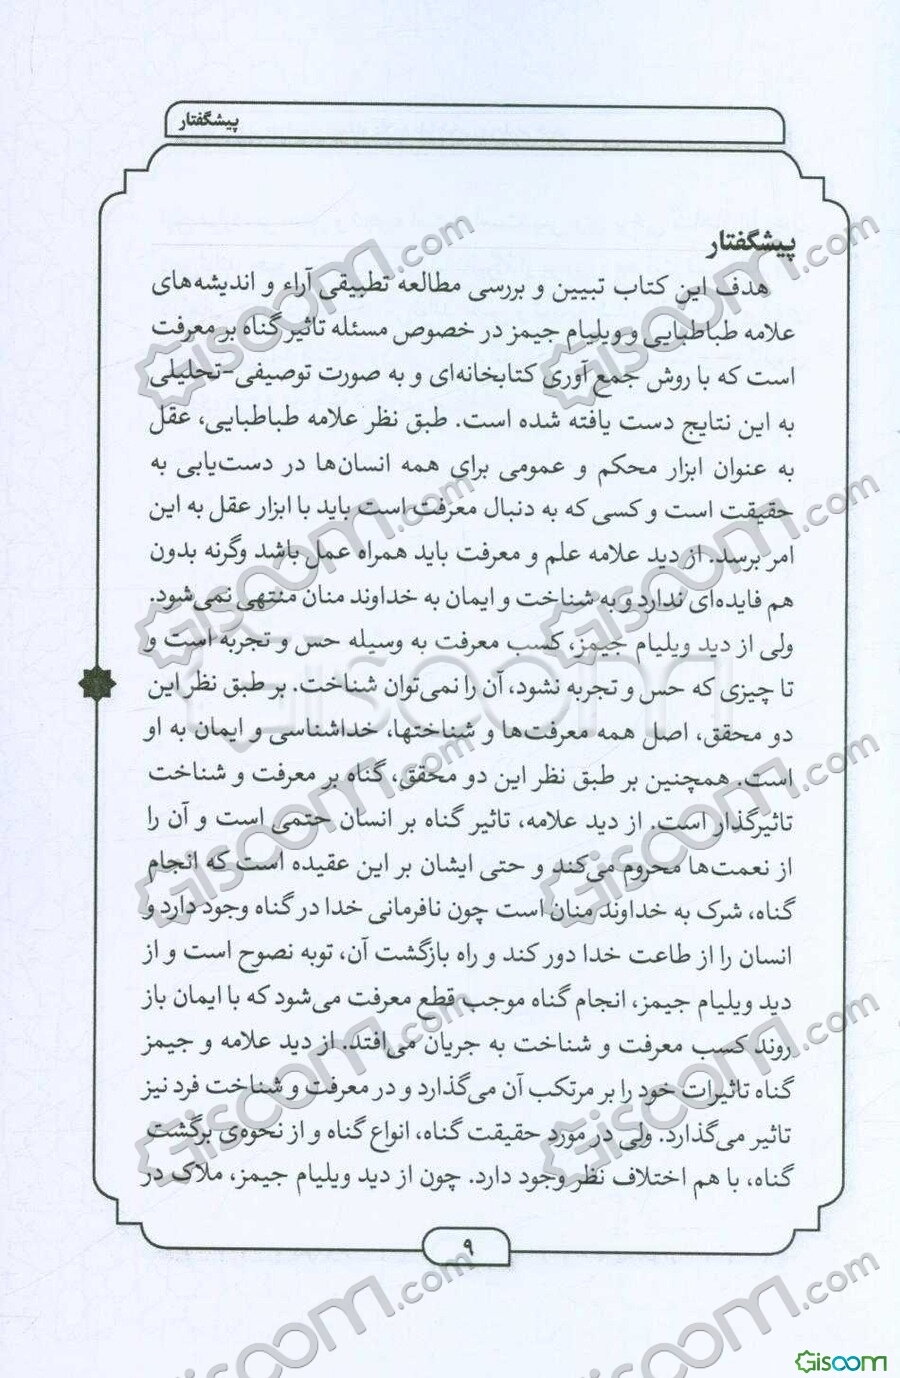 پیشگفتار
پیشگفتار
هدف این کتاب تبیین و بررسی مطالعه تطبیقی آراء و اندیشه‌های
علامه طباطبایی و ویلیام جیمز در خصوص مسئله تاثیر گناه بر معرفت
است که با روش جمع آوری کتابخانه‌ای و به صورت توصیفی-تحلیلی
به این نتایج دست یافته شده است. طبق نظر علامه طباطبایی، عقل
به عنوان ابزار محکم و عمومی برای همه انسان‌ها در دست‌یابی به
حقیقت است و کسی که به دنبال معرفت است باید با ابزار عقل به این
امر برسد. از دید علامه علم و معرفت باید همراه عمل باشد وگرنه بدون
هم فایده‌ای ندارد و به شناخت و ایمان به خداوند منان منتهی نمی‌شود.
ولی از دید ویلیام جیمز، کسب معرفت به وسیله حس و تجربه است و
تا چیزی که حس و تجربه نشود، آن را نمی‌توان شناخت. بر طبق نظر این
دو محقق، اصل همه معرفت‌ها و شناختها، خداشناسی و ایمان به او
است. همچنین بر طبق نظر این دو محقق، گناه بر معرفت و شناخت
تاثیرگذار است. از دید علامه، تاثیر گناه بر انسان حتمی است و آن را
از نعمت‌ها محروم می‌کند و حتی ایشان بر این عقیده است که انجام
گناه، شرک به خداوند منان است چون نافرمانی خدا در گناه وجود دارد و
انسان را از طاعت خدا دور کند و راه بازگشت آن، توبه نصوح است و از
دید ویلیام جیمز، انجام گناه موجب قطع معرفت می‌شود که با ایمان باز
روند کسب معرفت و شناخت به جریان می‌افتد. از دید علامه و جیمز
گناه تاثیرات خود را بر مرتکب آن می‌گذارد و در معرفت و شناخت فرد نیز
تاثیر می‌گذارد. ولی در مورد حقیقت گناه، انواع گناه و از نحوه‌ی برگشت
گناه، با هم اختلاف نظر وجود دارد. چون از دید ویلیام جیمز، ملاک در
۹
Gisoom